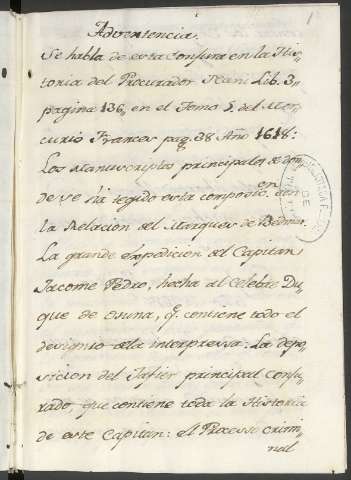 1
Advertencia.
Se habla de esta Conjura en la His-
toria del Procurador Nani Lib. 3,
pagina 136, en el Tomo 5. del Mer-
curio Frances pag. 38 Año 1618:
Los Manuscriptos principales de don-
de se há tegido esta composic.on son
la Relacion del Marques de Bedmar.
La grande expedicion del Capitan
Jacome Pedro, hecha al Celebre Du-
que de osuna, q.e contiene todo el
designio de la interpressa: La depo-
sicion del Jafier principal Conju-
rado, que contiene toda la Historia
de este Capitan: el Processo crimi-
nal